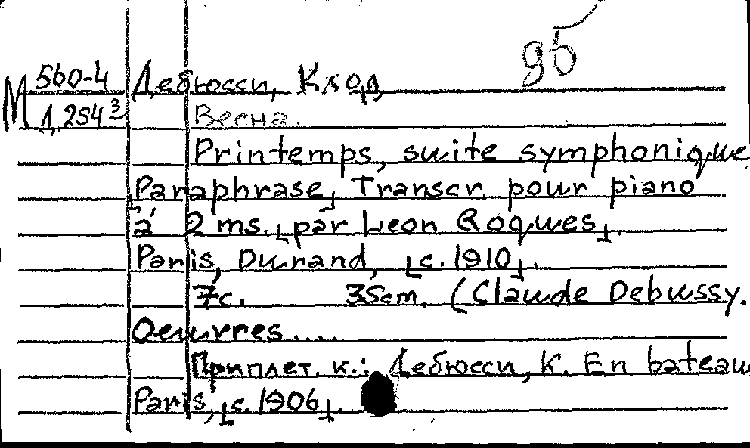 95
М 560-4 Дебюсси, Клод
Д 254³ Весна.
Printemps, suite symphonique
Paraphrase, Transcr. pour piano
à 2 ms. [par Leon Roques].
Paris, Durand, [c. 1910].
7с. 35cm. (Claude Debussy.
Oeuvres....
Приплет. к.: Дебюсси, К. En bateau
Paris, [c. 1906].